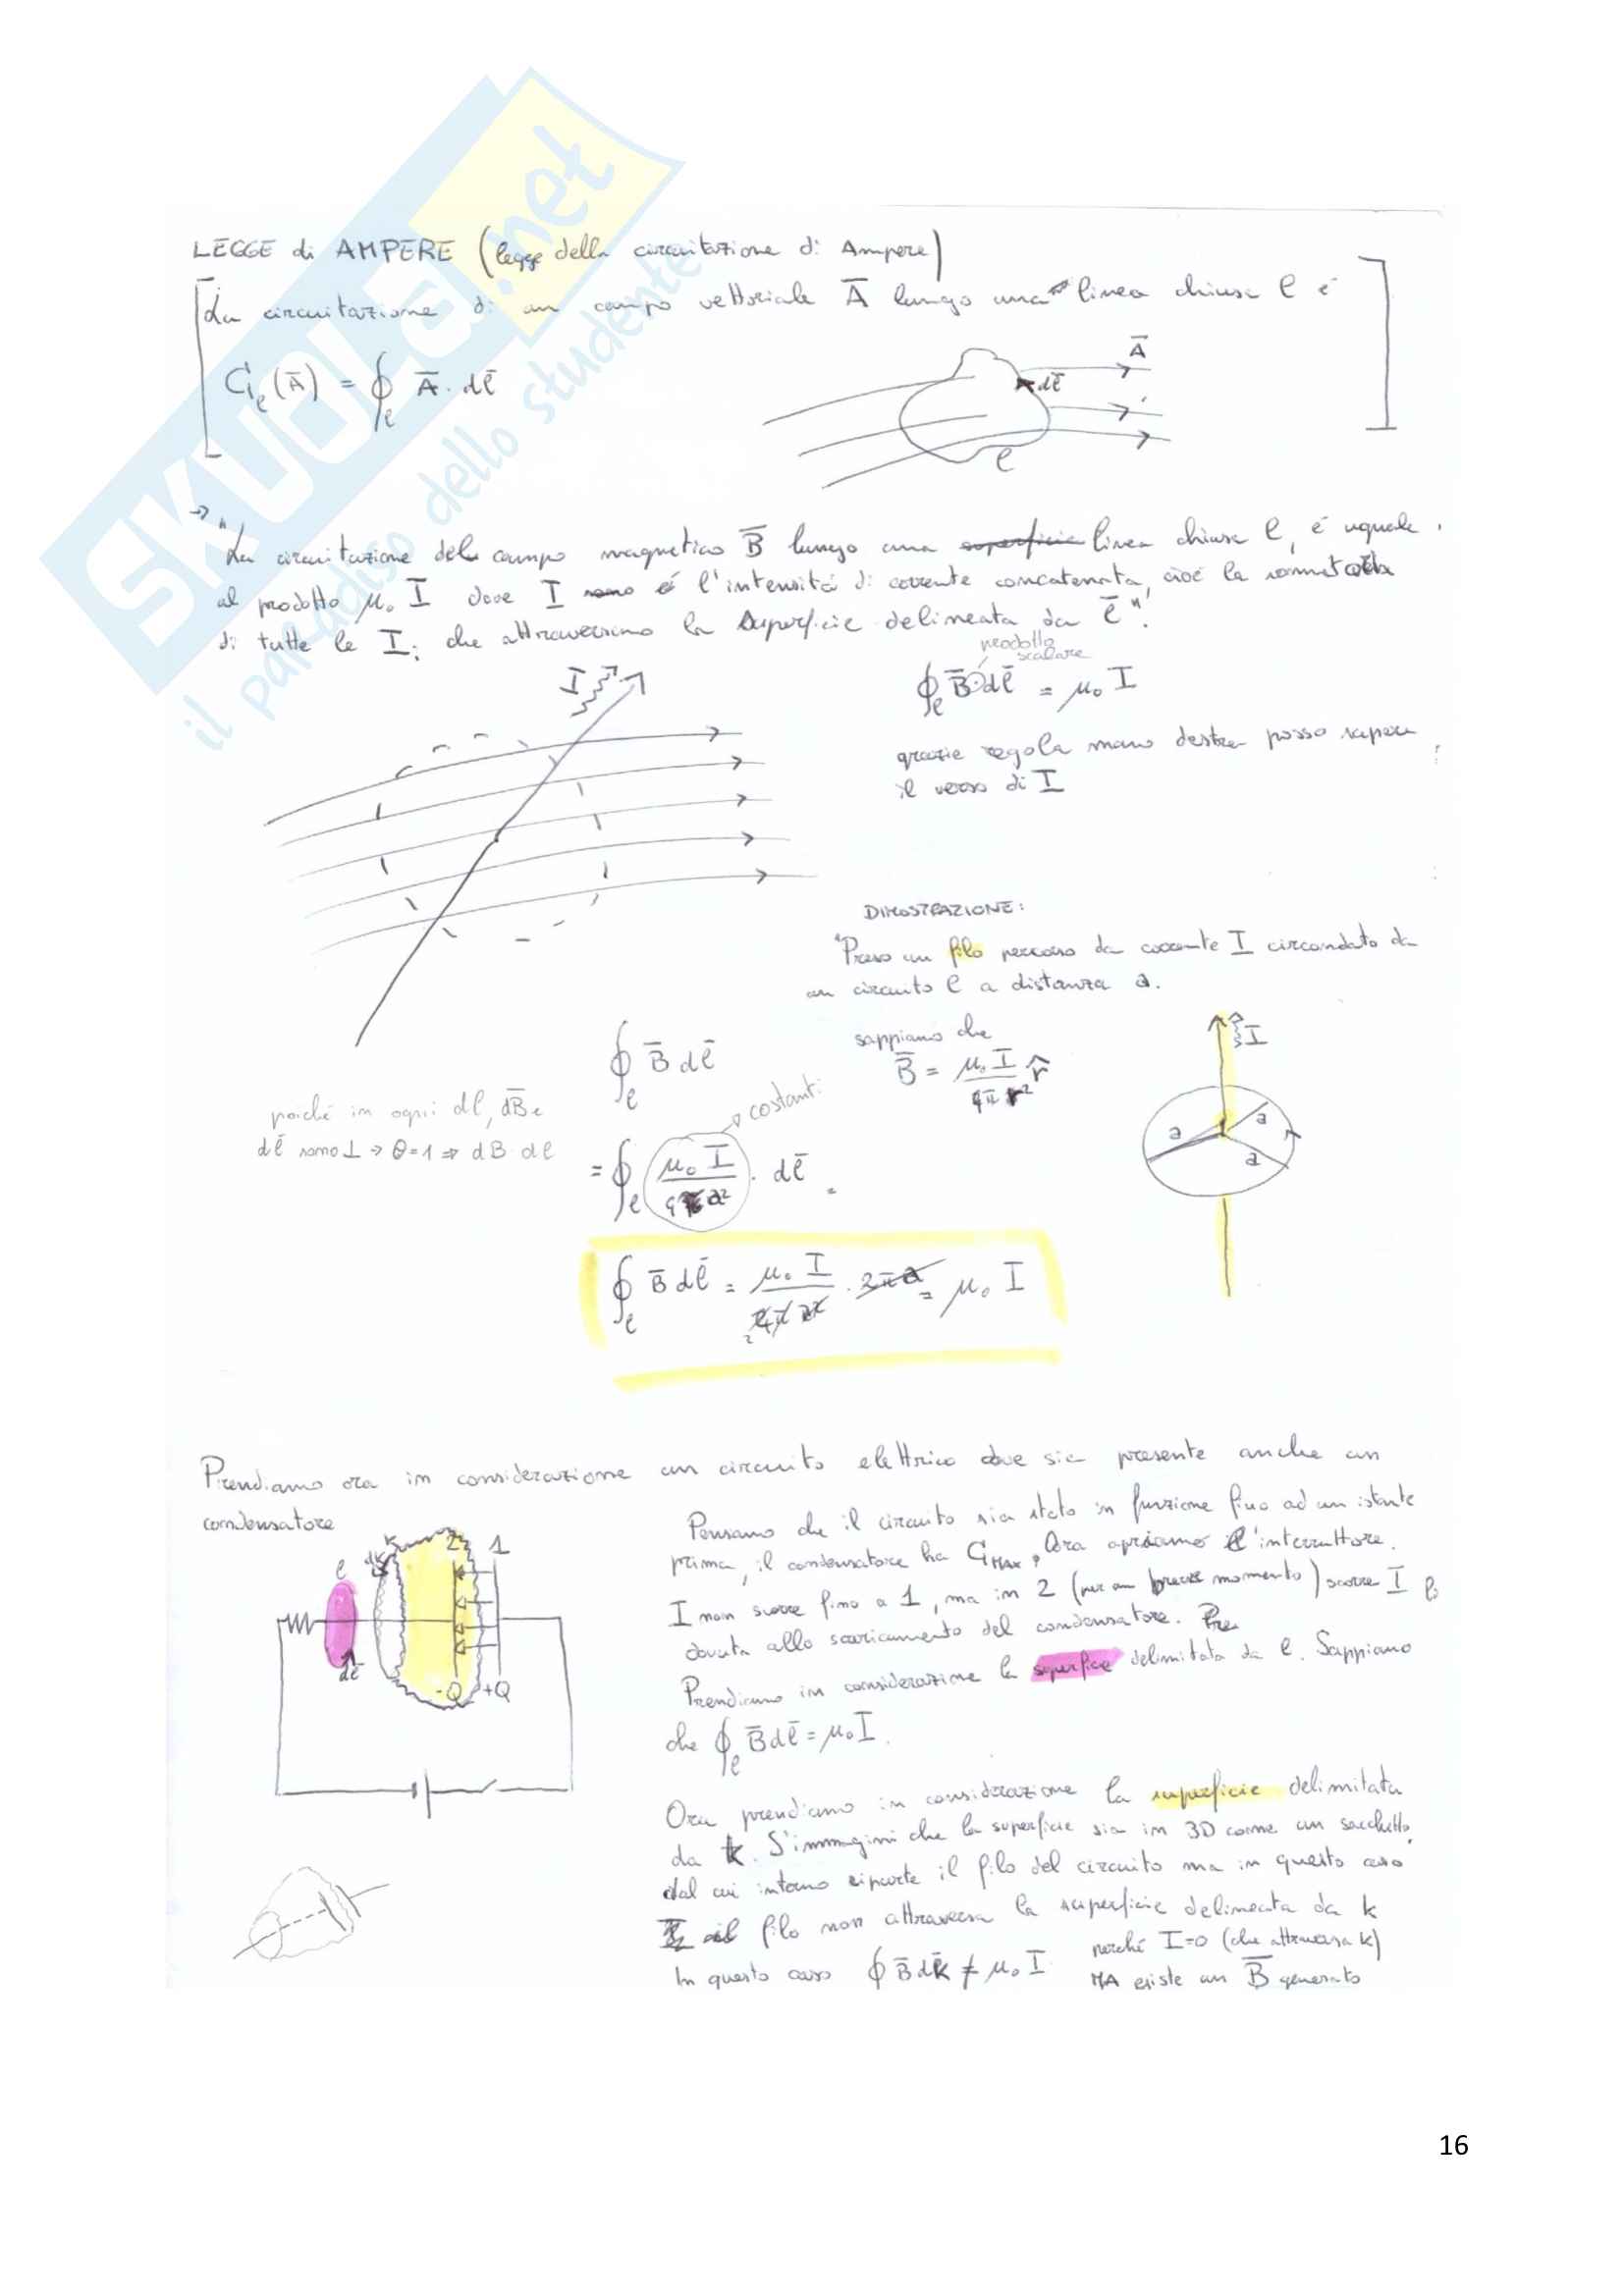 SKUOLA.net
il paradiso dello studente
LEGGE di AMPERE (legge della circuitazione di Ampere)
La circuitazione di un campo vettoriale A̅ lungo una linea chiusa l è
C_l(A̅) = ∮_l A̅ · dl̅
A̅
dl̅
l
→ "La circuitazione del campo magnetico B̅ lungo una superficie linea chiusa l, é uguale
al prodotto μ₀ I dove I sono é l'intensità di corrente concatenata, cioè la sommatoria
di tutte le Iᵢ che attraversano la superficie delineata da l̅".
prodotto
scalare
I
∮_l B̅ · dl̅ = μ₀ I
grazie regola mano destra posso sapere
il verso di I
DIMOSTRAZIONE:
"Preso un filo percorso da corrente I circondato da
un circuito l a distanza a.
∮_l B̅ dl̅
sappiamo che
B̅ = μ₀ I / 4π r² r̂
I
a
a
a
poiché in ogni dl, dB̅ e
dl̅ sono ⊥ → θ=1 ⇒ dB dl
costanti
= ∮_l μ₀ I / 4π a² · dl̅ =
∮_l B̅ dl̅ = μ₀ I / · 2πa = μ₀ I
Prendiamo ora in considerazione un circuito elettrico dove sia presente anche un
condensatore
l
dl̅
dk
k
2
1
-Q
+Q
Pensiamo che il circuito sia stato in funzione fino ad un istante
prima, il condensatore ha C_MAX, Ora apriamo l'interruttore.
I non scorre fino a 1, ma in 2 (per un breve momento) scorre I
dovuta allo scaricamento del condensatore. Pre
Prendiamo in considerazione la superfice delimitata da l. Sappiamo
che ∮_l B̅ dl̅ = μ₀ I.
Ora prendiamo in considerazione la superficie delimitata
da k. S'immagini che la superficie sia in 3D come un sacchetto,
dal cui intorno riparte il filo del circuito ma in questo caso
il filo non attraversa la superficie delineata da k
In questo caso ∮ B̅ dk̅ ≠ μ₀ I perché I=0 (che attraversa k)
MA esiste un B̅ generato
16